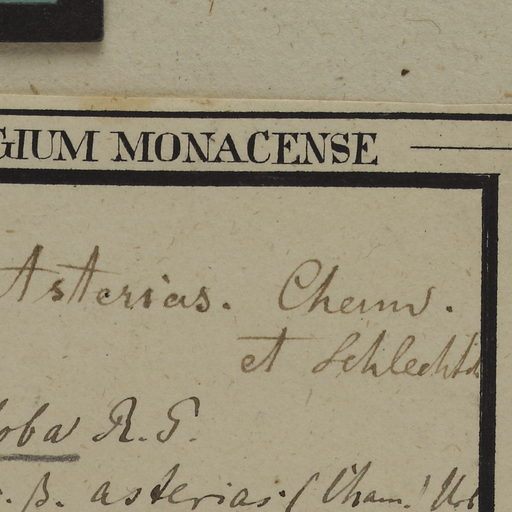 GIUM MONACENSE
Asterias. Cham.
et Schlechtd
oba R. S.
β. asterias (Cham.!